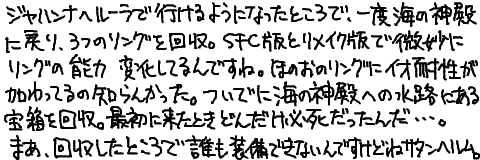 ジャハンナへルーラで行けるようになったところで、一度海の神殿
に戻り、3つのリングを回収。SFC版とリメイク版で微妙に
リングの能力 変化してるんですね。ほのおのリングにイオ耐性が
加わってるの知らんかった。ついでに海の神殿への水路にある
宝箱を回収。最初に来たときどんだけ必死だったんだ…。
まあ、回収したところで誰も装備できないんですけどねサタンヘルム。